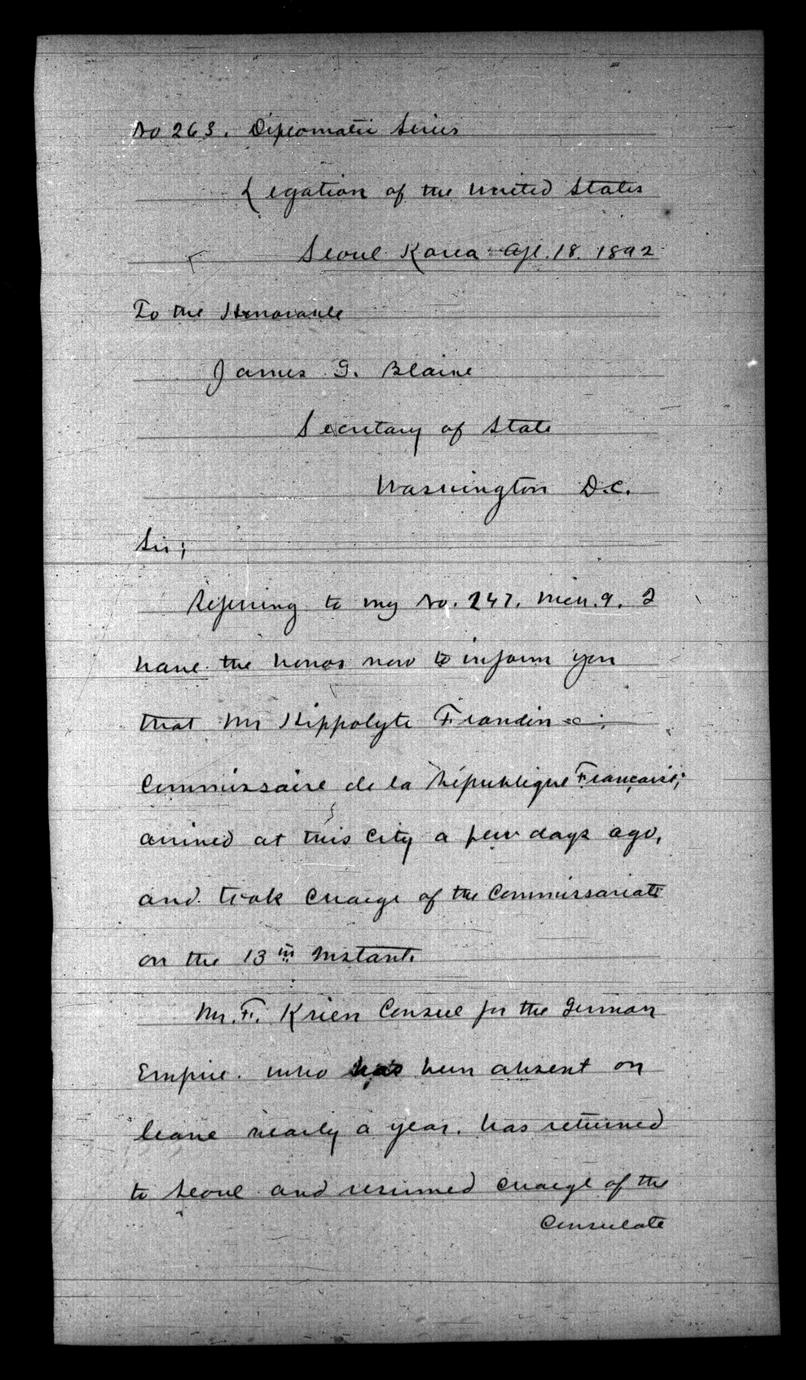 No 263. Diplomatic Series
Legation of the United States
Seoul Korea Apl. 18. 1892
To the Honorable
James G. Blaine
Secretary of State
Washington D.C.
Sir;
Referring to my No. 247. Mch. 9. I
have the honor now to inform you
that Mr Hippolyte Frandin
Commissaire de la République Française;
arrived at this City a few days ago,
and took charge of the Commissariate
on the 13th instant.
Mr. F. Krien Consul for the German
Empire. who has been absent on
leave nearly a year. has returned
to Seoul and resumed charge of the
Consulate